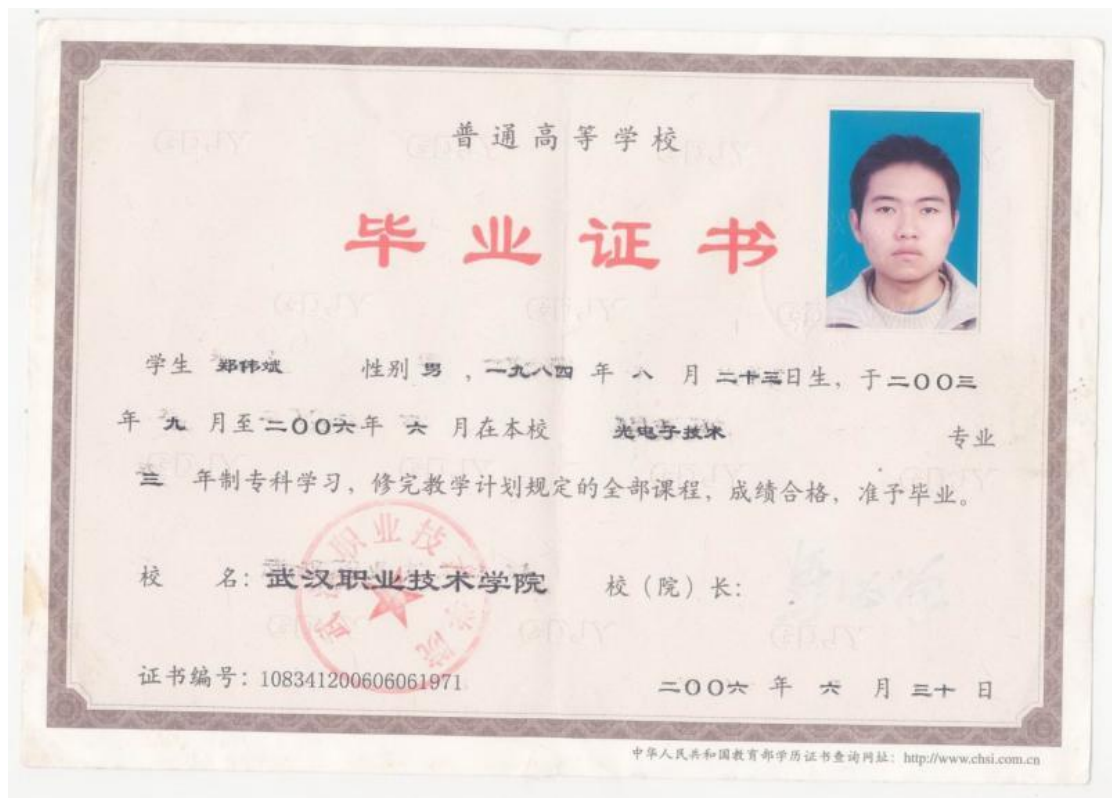 普通高等学校
毕业证书
学生 郑伟斌 性别 男 ，一九八四 年 八 月 二十三日生，于二〇〇三
年 九 月至二〇〇六年 六 月在本校 光电子技术 专业
三 年制专科学习，修完教学计划规定的全部课程，成绩合格，准予毕业。
校 名：武汉职业技术学院 校（院）长：
武汉职业技术学院
证书编号：108341200606061971 二〇〇六 年 六 月 三十 日
中华人民共和国教育部学历证书查询网址：http://www.chsi.com.cn